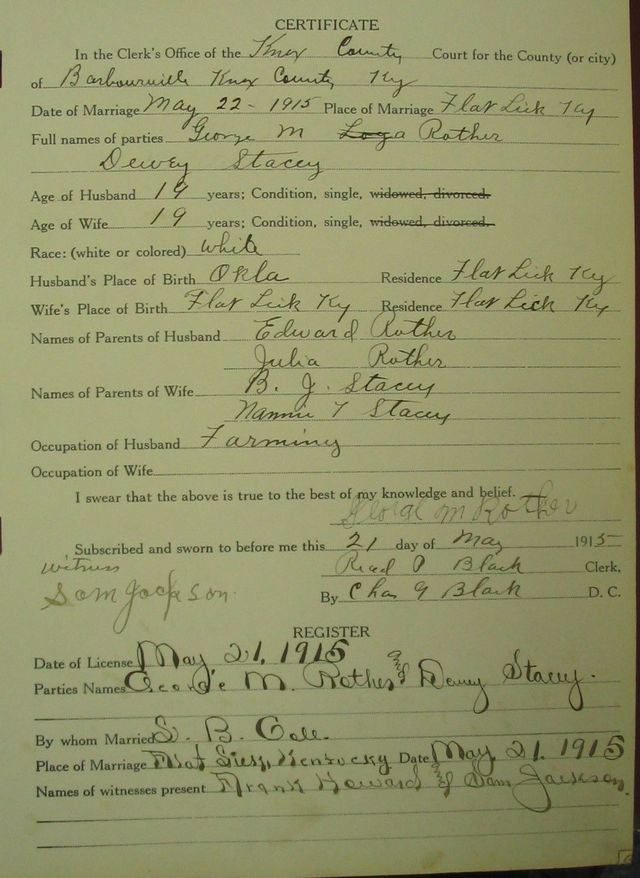 CERTIFICATE
In the Clerk's Office of the Knox County Court for the County (or city)
of Barbourville Knox County Ky
Date of Marriage May 22 - 1915 Place of Marriage Flat Lick Ky
Full names of parties George M Rother
Dewey Stacey
Age of Husband 19 years; Condition, single, widowed, divorced.
Age of Wife 19 years; Condition, single, widowed, divorced.
Race: (white or colored) White
Husband's Place of Birth Okla Residence Flat Lick Ky
Wife's Place of Birth Flat Lick Ky Residence Flat Lick Ky
Names of Parents of Husband Edward Rother
Julia Rother
Names of Parents of Wife B. J. Stacey
Nannie T Stacey
Occupation of Husband Farming
Occupation of Wife
I swear that the above is true to the best of my knowledge and belief.
George M Rother
Subscribed and sworn to before me this 21 day of May 1915
witness Read P Black Clerk,
Sam Jackson. By Chas G Black D. C.
REGISTER
Date of License May 21, 1915
Parties Names George M. Rother and Dewey Stacey.
By whom Married S. B. Cole.
Place of Marriage Flat Lick, Kentucky Date May 21, 1915
Names of witnesses present Frank Howard and Sam Jackson.